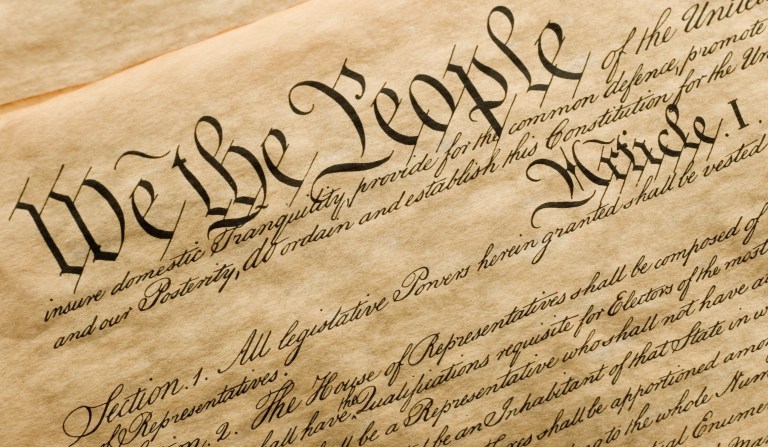 We the People of the United
insure domestic Tranquility, provide for the common defence, promote
and our Posterity, do ordain and establish this Constitution for the Un
Article. I.
Section. 1. All legislative Powers herein granted shall be vested
of Representatives.
ion. 2. The House of Representatives shall be composed of
all have the Qualifications requisite for Electors of the most
ll be a Representative who shall not have
be an Inhabitant of that State in w
shall be apportioned amon
to the whole Num
Enumer